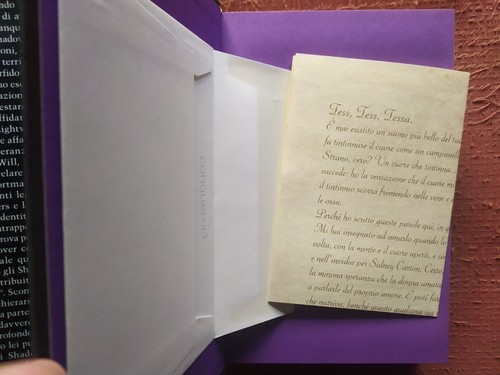 di a
hadov
oni,
terri
rfido
di s
azion
estare
ightw
affe
eranz
Will,
velare
ortma
nti le
ers e l
dentit
ntrapp
rova p
vere co
ale qu
gli Sha
tribuit
. Scon
hieran
a parte
davver
rofondo
o lei pu
i Shad
conqueror
Tess, Tess, Tessa.
È mai esistito un suono più bello del tuo
fa tintinnare il cuore come un campanell
Strano, vero? Un cuore che tintinna...
succede: ho la sensazione che il cuore mi
il tintinnio scorra fremendo nelle vene e
le ossa.
Perché ho scritto queste parole qui, in q
Mi hai insegnato ad amarlo quando l
volta, con la mente e il cuore aperti, e
e nell'invidia per Sidney Carton. Certo
la minima speranza che la donna amata
a parlarle del proprio amore. E poté far
che nutriva, benché questo qualcosa